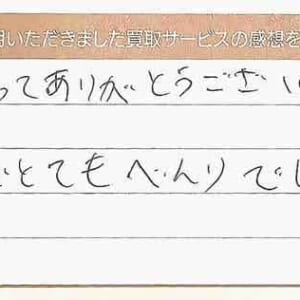 用いただきました買取サービスの感想を
ってありがとうござい
とてもべんりでし